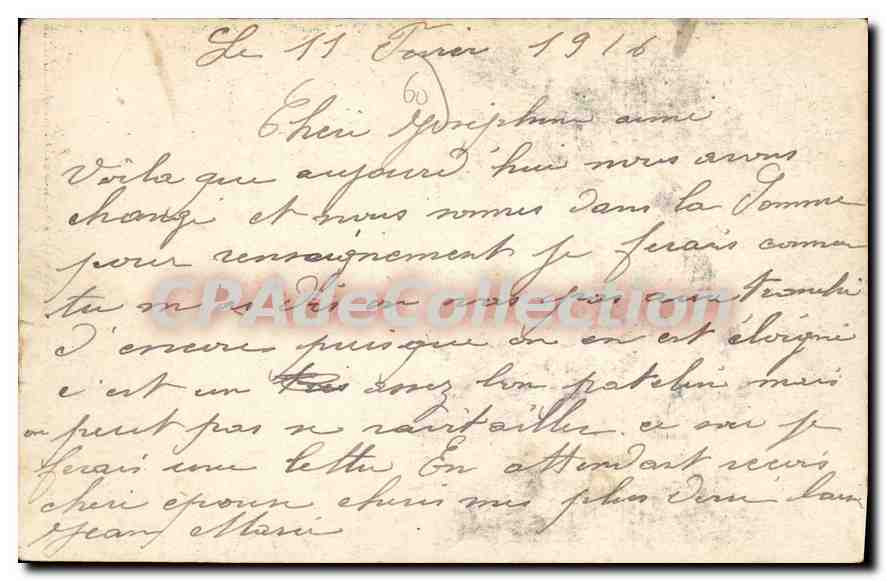 Le 11 Fevrier 1916
60
Cheri Josephine aimé
Voila que aujourd'hui nous avons
changé et nous sommes dans la Somme
pour renseignement je ferais comme
tu m'as dis on vas pas aux tranché
d'encore puisque on en est éloigné
c'est un assez bon patelin mais
on peut pas se ravitailler ce soir je
ferais une lettre En attendant recois
cheri epouse cheris mes plus
Jean Marie
CPAdeCollection